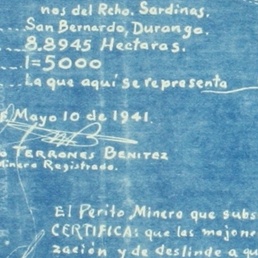 nos del Rcho. Sardinas.
San Bernardo, Durango.
8.8945 Hectaras.
1=5000
La que aquí se representa
Mayo 10 de 1941.
TERRONES BENITEZ
Minero Registrado.
El Perito Minero que subs
CERTIFICA: que las mojone
zación y de deslinde a qu